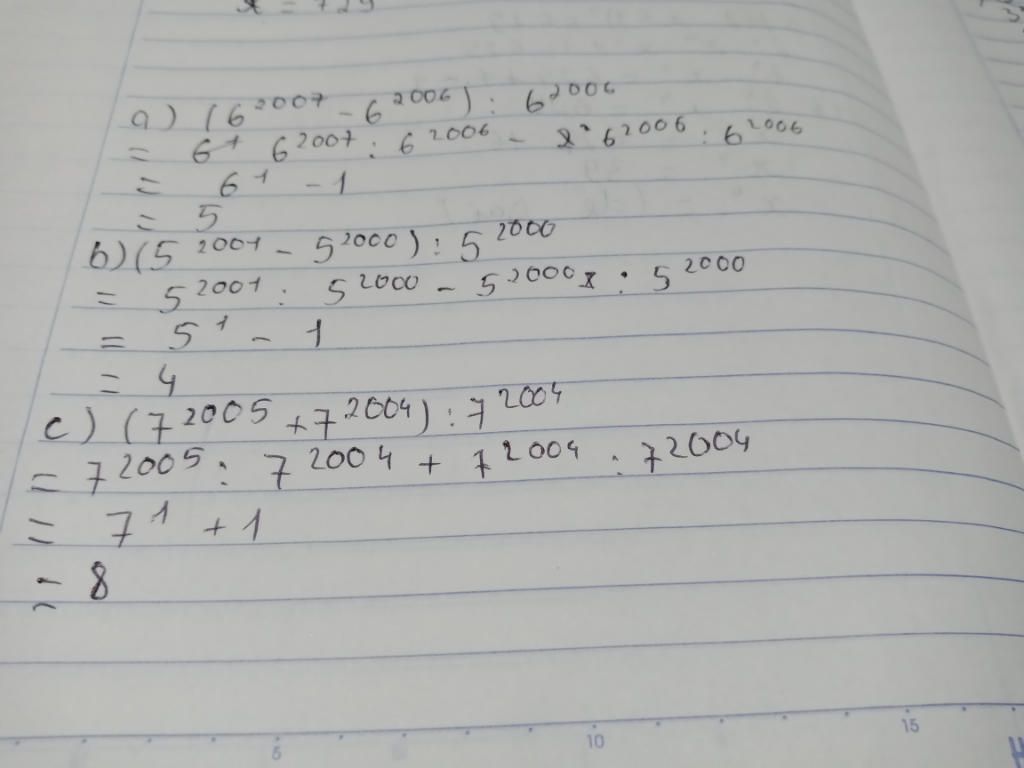 x = 729
a) (6²⁰⁰⁷ - 6²⁰⁰⁶) : 6²⁰⁰⁶
= 6¹ 6²⁰⁰⁷ : 6²⁰⁰⁶ - 6²⁰⁰⁶ : 6²⁰⁰⁶
= 6¹ - 1
= 5
b) (5²⁰⁰¹ - 5²⁰⁰⁰) : 5²⁰⁰⁰
= 5²⁰⁰¹ : 5²⁰⁰⁰ - 5²⁰⁰⁰ : 5²⁰⁰⁰
= 5¹ - 1
= 4
c) (7²⁰⁰⁵ + 7²⁰⁰⁴) : 7²⁰⁰⁴
= 7²⁰⁰⁵ : 7²⁰⁰⁴ + 7²⁰⁰⁴ : 7²⁰⁰⁴
= 7¹ + 1
= 8
5 10 15